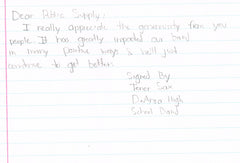 Dear Bills Supply,
I really appreciate the generosity from you
people. It has greatly impacted our band
in many positive ways & will just
continue to get better.
Signed By
Tenor Sax
D'Andrea High
School Band